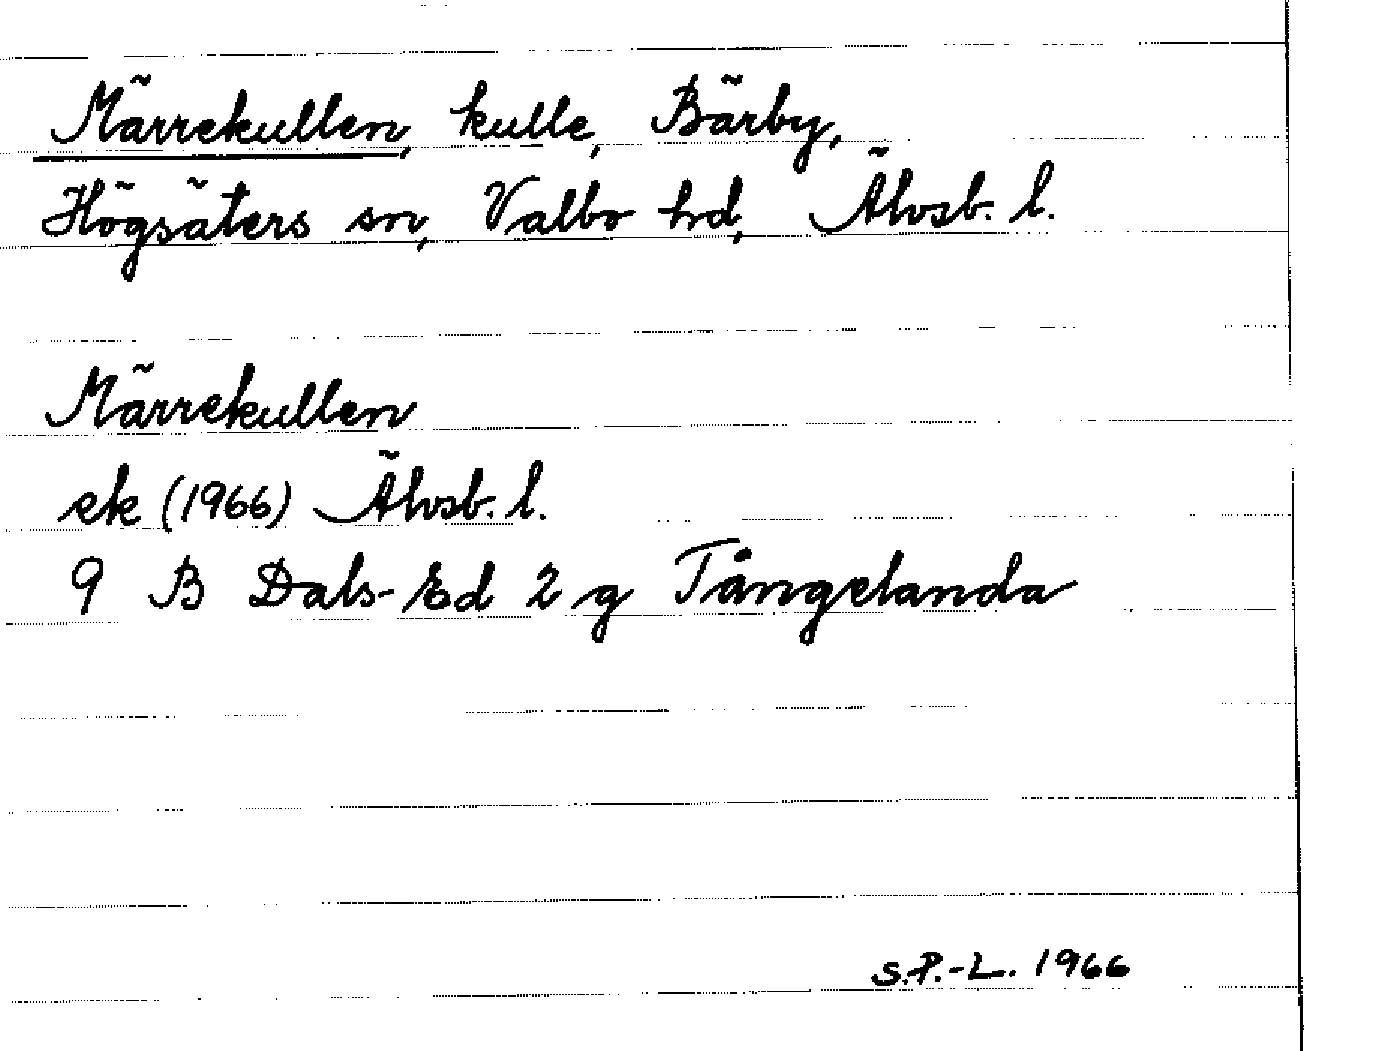 Märrekullen, kulle, Bärby,
Högsäters sn, Valbo hd, Älvsb. l.
Märrekullen
ek (1966) Älvsb. l.
9 B Dals-Ed 2 g Tångelanda
S.P.-L. 1966